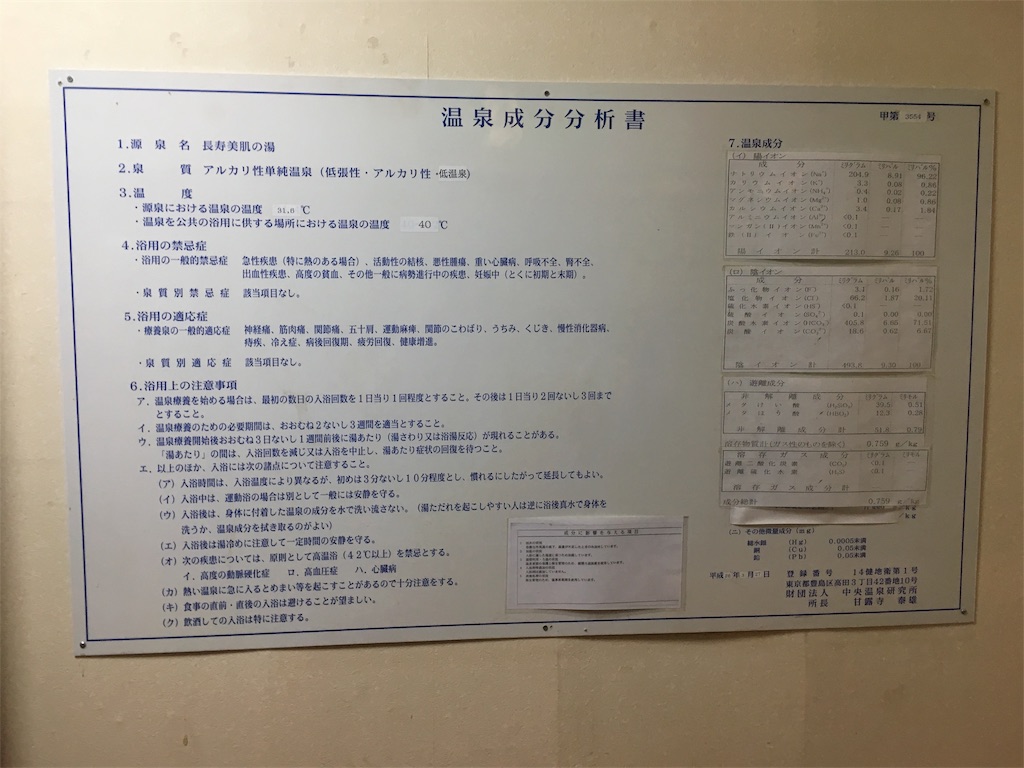 温泉成分分析書
甲第 号
1.源泉名 長寿美肌の湯
2.泉質 アルカリ性単純温泉（低張性・アルカリ性・低温泉）
3.温度
・源泉における温泉の温度 31.6 ℃
・温泉を公共の浴用に供する場所における温泉の温度 40 ℃
4.浴用の禁忌症
・浴用の一般的禁忌症 急性疾患（特に熱のある場合）、活動性の結核、悪性腫瘍、重い心臓病、呼吸不全、腎不全、
出血性疾患、高度の貧血、その他一般に病勢進行中の疾患、妊娠中（とくに初期と末期）。
・泉質別禁忌症 該当項目なし。
5.浴用の適応症
・療養泉の一般的適応症 神経痛、筋肉痛、関節痛、五十肩、運動麻痺、関節のこわばり、うちみ、くじき、慢性消化器病、
痔疾、冷え症、病後回復期、疲労回復、健康増進。
・泉質別適応症 該当項目なし。
6.浴用上の注意事項
ア．温泉療養を始める場合は、最初の数日の入浴回数を1日当り1回程度とすること。その後は1日当り2回ないし3回まで
とすること。
イ．温泉療養のための必要期間は、おおむね2ないし3週間を適当とすること。
ウ．温泉療養開始後おおむね3日ないし1週間前後に湯あたり（湯さわり又は浴湯反応）が現れることがある。
「湯あたり」の間は、入浴回数を減じ又は入浴を中止し、湯あたり症状の回復を待つこと。
エ．以上のほか、入浴には次の諸点について注意すること。
（ア）入浴時間は、入浴温度により異なるが、初めは3分ないし10分程度とし、慣れるにしたがって延長してもよい。
（イ）入浴中は、運動浴の場合は別として一般には安静を守る。
（ウ）入浴後は、身体に付着した温泉の成分を水で洗い流さない。（湯ただれを起こしやすい人は逆に浴後真水で身体を
洗うか、温泉成分を拭き取るのがよい）
（エ）入浴後は湯冷めに注意して一定時間の安静を守る。
（オ）次の疾患については、原則として高温浴（42℃以上）を禁忌とする。
イ．高度の動脈硬化症 ロ．高血圧症 ハ．心臓病
（カ）熱い温泉に急に入るとめまい等を起こすことがあるので十分注意をする。
（キ）食事の直前・直後の入浴は避けることが望ましい。
（ク）飲酒しての入浴は特に注意する。
7.温泉成分
（イ）陽イオン
成分 ミリグラム ミリバル ミリバル%
ナトリウムイオン(Na⁺) 204.9 8.91 96.22
カリウムイオン(K⁺) 3.3 0.08 0.86
アンモニウムイオン(NH₄⁺) 0.4 0.02 0.22
マグネシウムイオン(Mg²⁺) 1.0 0.08 0.86
カルシウムイオン(Ca²⁺) 3.4 0.17 1.84
アルミニウムイオン <0.1 — —
マンガン(Ⅱ)イオン <0.1 — —
鉄(Ⅱ)イオン <0.1 — —
陽イオン計 213.0 9.26 100
（ロ）陰イオン
成分 ミリグラム ミリバル ミリバル%
ふっ化物イオン(F⁻) 3.1 0.16 1.72
塩化物イオン(Cl⁻) 66.2 1.87
硫化水素イオン(HS⁻) <0.1 — —
硫酸イオン 0.1 0.00 0.00
炭酸水素イオン(HCO₃⁻) 405.6 6.65 71.51
炭酸イオン(CO₃²⁻) 18.6 0.62 6.67
陰イオン計 493.6 9.30 100
（ハ）遊離成分
非解離成分 ミリグラム ミリモル
メタけい酸 (H₂SiO₃) 39.5 0.51
メタほう酸 (HBO₂) 12.3 0.28
非解離成分計 51.8 0.79
溶存物質計(ガス性のものを除く) 0.759 g/kg
溶存ガス成分 ミリグラム ミリモル
遊離二酸化炭素 (CO₂) <0.1 —
遊離硫化水素 (H₂S) <0.1 —
溶存ガス成分計
成分総計 0.759 g/kg
（ニ）その他微量成分(mg)
総水銀 (Hg) 0.0005未満
銅 (Cu) 0.05未満
鉛 (Pb) 0.05未満
平成 年 月 日 登録番号 14健地衛第1号
東京都豊島区高田3丁目42番地10号
財団法人 中央温泉研究所
所長 甘露寺 泰雄